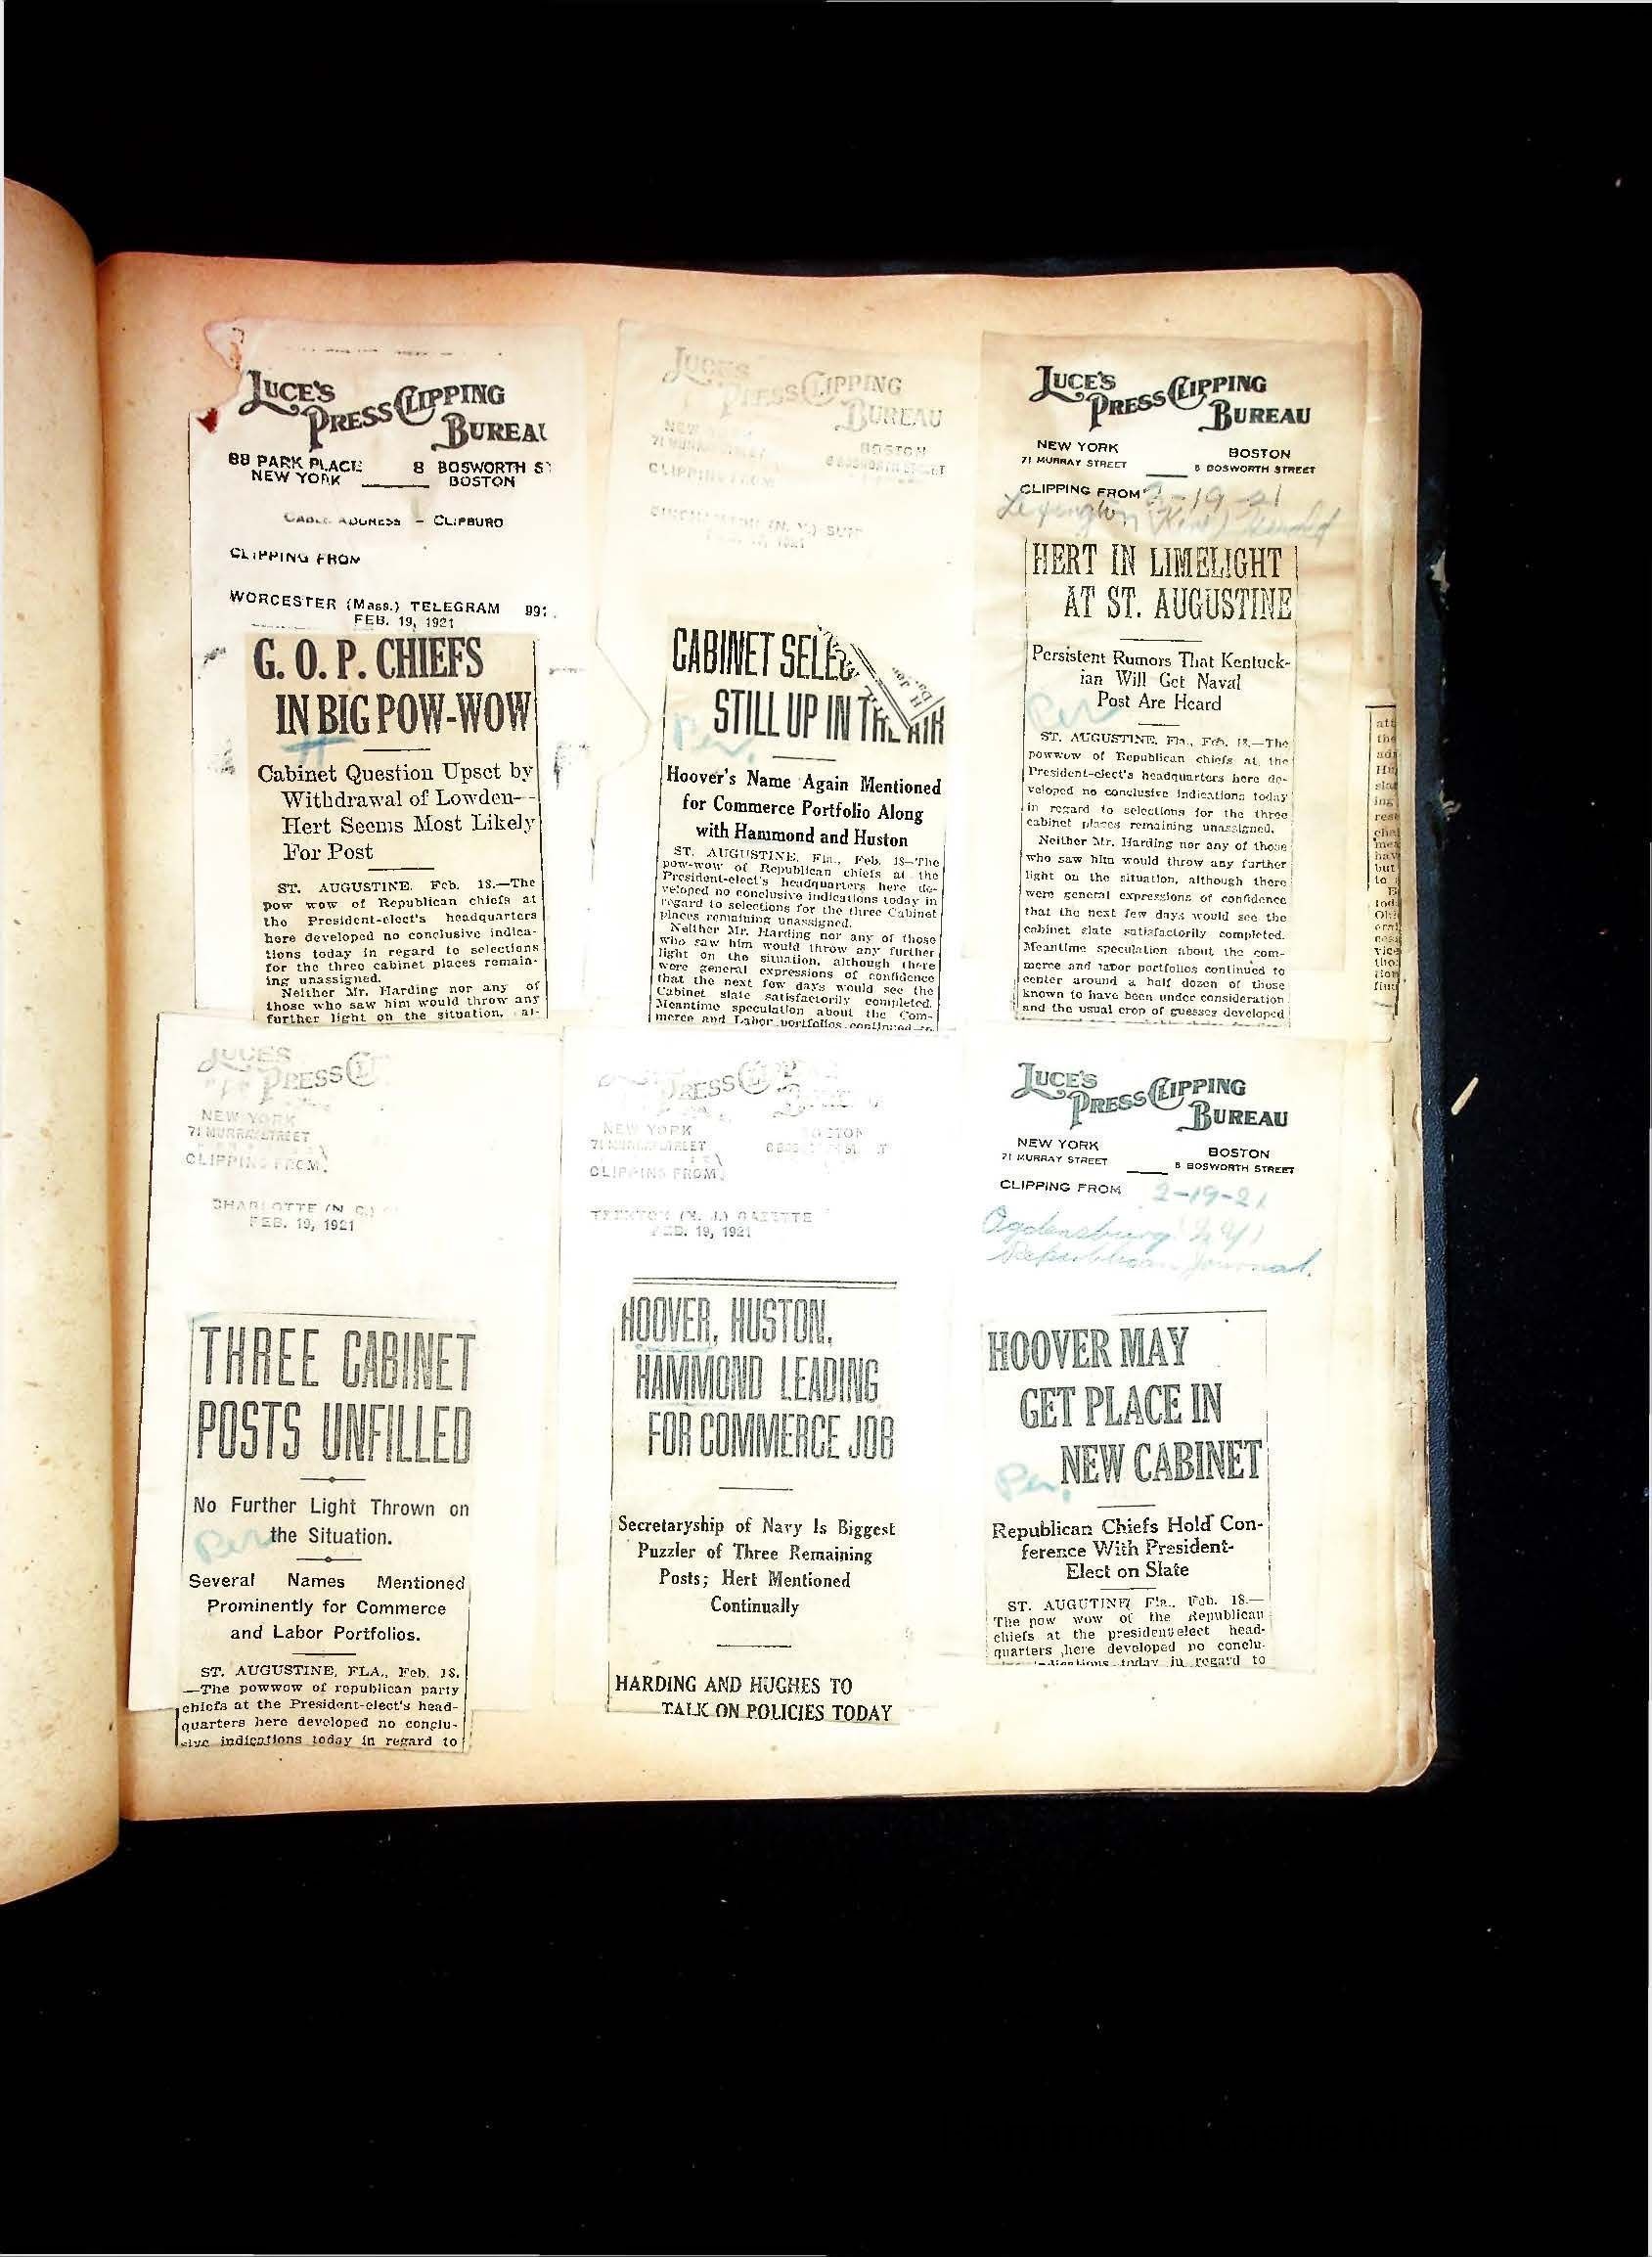 LUCE'S
PRESS CLIPPING
BUREAU
88 PARK PLACE 8 BOSWORTH ST
NEW YORK BOSTON
CABLE ADDRESS – CLIPBURO
CLIPPING FROM
WORCESTER (Mass.) TELEGRAM 991
FEB. 19, 1921
G. O. P. CHIEFS
IN BIG POW-WOW
Cabinet Question Upset by
Withdrawal of Lowden--
Hert Seems Most Likely
For Post
ST. AUGUSTINE, Feb. 18.—The
pow wow of Republican chiefs at
the President-elect's headquarters
here developed no conclusive indica-
tions today in regard to selections
for the three cabinet places remain-
ing unassigned.
Neither Mr. Harding nor any of
those who saw him would throw any
further light on the situation, al-
LUCE'S
PRESS CLIPPING
BUREAU
NEW YORK
71 MURRAY STREET BOSTON
8 BOSWORTH STREET
CLIPPING FROM
BINGHAMTON (N. Y.) SUN
CABINET SELEC
STILL UP IN THE AIR
Per.
Hoover's Name Again Mentioned
for Commerce Portfolio Along
with Hammond and Huston
ST. AUGUSTINE, Fla., Feb. 18—The
pow-wow of Republican chiefs at the
President-elect's headquarters here de-
veloped no conclusive indications today in
regard to selections for the three Cabinet
places remaining unassigned.
Neither Mr. Harding nor any of those
who saw him would throw any further
light on the situation, although there
were general expressions of confidence
that the next few days would see the
Cabinet slate satisfactorily completed.
Meantime speculation about the Com-
merce and Labor portfolios continued to
LUCE'S
PRESS CLIPPING
BUREAU
NEW YORK BOSTON
71 MURRAY STREET 8 BOSWORTH STREET
CLIPPING FROM 2-19-21
Lexington (Ken) Herald
HERT IN LIMELIGHT
AT ST. AUGUSTINE
Persistent Rumors That Kentuck-
ian Will Get Naval
Post Are Heard
Per
ST. AUGUSTINE, Fla., Feb. 18.—The
powwow of Republican chiefs at the
President-elect's headquarters here de-
veloped no conclusive indications today
in regard to selections for the three
cabinet places remaining unassigned.
Neither Mr. Harding nor any of those
who saw him would throw any further
light on the situation, although there
were general expressions of confidence
that the next few days would see the
cabinet slate satisfactorily completed.
Meantime speculation about the com-
merce and labor portfolios continued to
center around a half dozen of those
known to have been under consideration
and the usual crop of guesses developed
LUCE'S
PRESS C
NEW YORK
71 MURRAY STREET
CLIPPING FROM
CHARLOTTE (N. C.)
FEB. 19, 1921
THREE CABINET
POSTS UNFILLED
No Further Light Thrown on
the Situation.
Per
Several Names Mentioned
Prominently for Commerce
and Labor Portfolios.
ST. AUGUSTINE, FLA., Feb. 18.
—The powwow of republican party
chiefs at the President-elect's head-
quarters here developed no conclu-
sive indications today in regard to
PRESS C
NEW YORK BOSTON
71 MURRAY STREET
CLIPPING FROM
TRENTON (N. J.) GAZETTE
FEB. 19, 1921
HOOVER, HUSTON,
HAMMOND LEADING
FOR COMMERCE JOB
Secretaryship of Navy Is Biggest
Puzzler of Three Remaining
Posts; Hert Mentioned
Continually
HARDING AND HUGHES TO
TALK ON POLICIES TODAY
LUCE'S
PRESS CLIPPING
BUREAU
NEW YORK BOSTON
71 MURRAY STREET 8 BOSWORTH STREET
CLIPPING FROM 2-19-21
Ogdensburg (N.Y.)
Republican Journal.
HOOVER MAY
GET PLACE IN
NEW CABINET
Per.
Republican Chiefs Hold Con-
ference With President-
Elect on Slate
ST. AUGUTINE, Fla., Feb. 18.—
The pow wow of the Republican
chiefs at the president elect head-
quarters here developed no conclu-
indications today in regard to